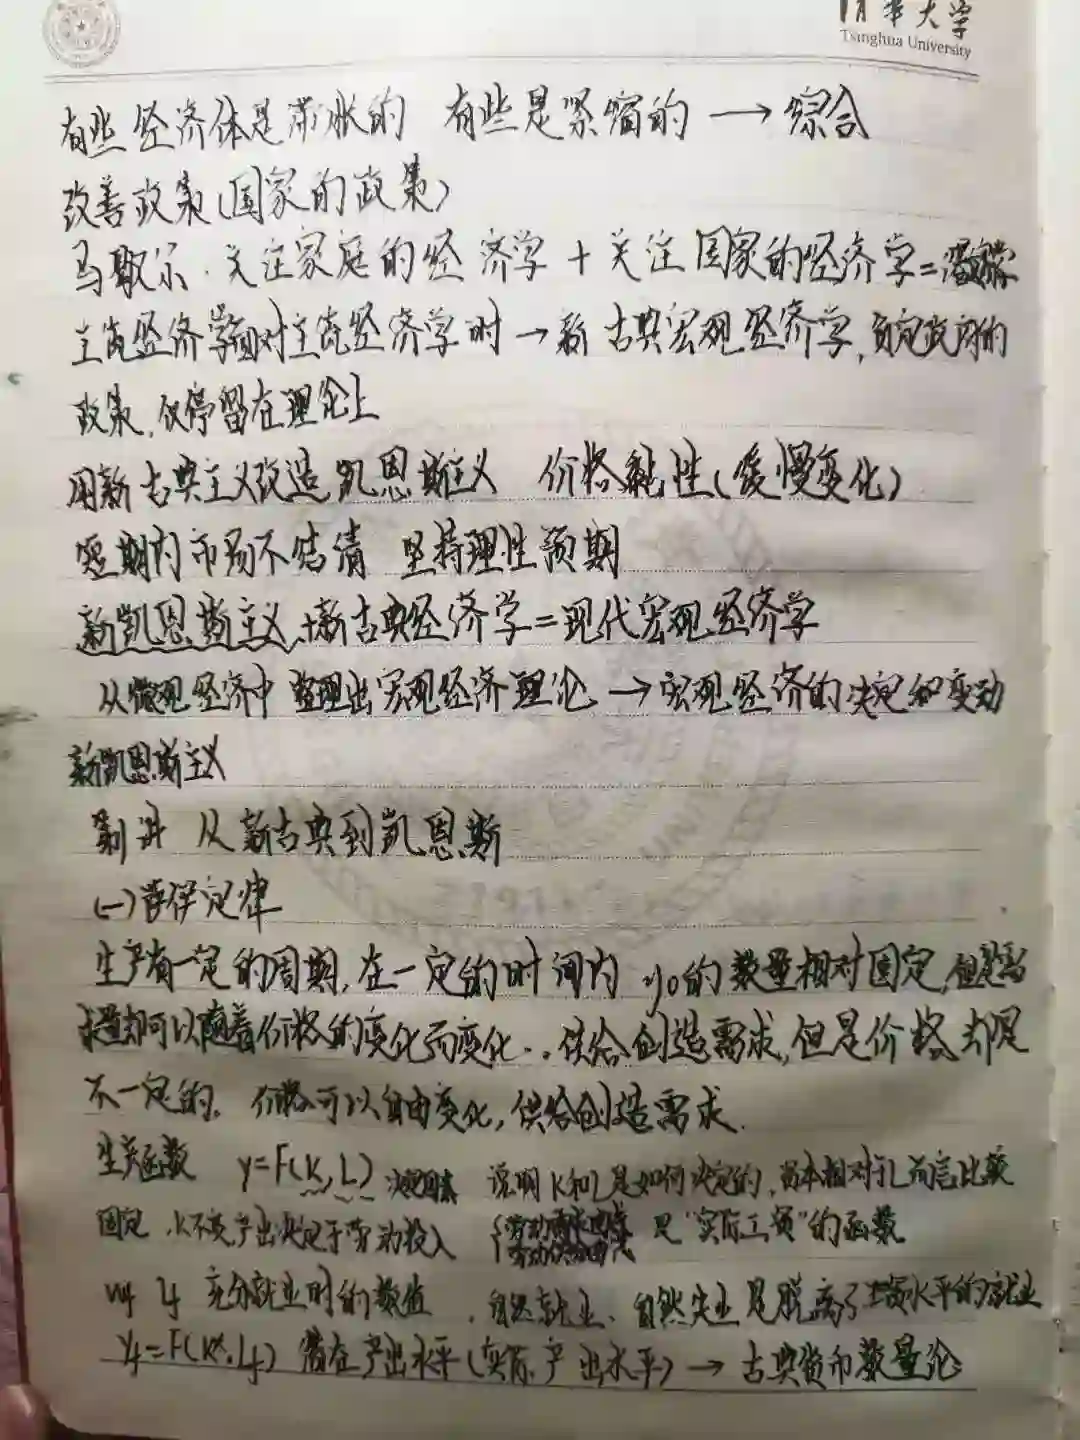 清华大学
Tsinghua University
有些经济体是滞胀的 有些是紧缩的 → 综合
改善政策(国家的政策)
马歇尔.关注家庭的经济学 + 关注国家的经济学=
主流经济学面对主流经济学时→新古典宏观经济学,负定政府的
政策,仅停留在理论上
用新古典主义改造凯恩斯主义 价格黏性(缓慢变化)
短期内市场不结清 坚持理性预期
新凯恩斯主义+新古典经济学=现代宏观经济学
从微观经济中整理出宏观经济理论 → 宏观经济的决定和变动
新凯恩斯主义
讲 从新古典到凯恩斯
(一)萨伊定律
生产有一定的周期,在一定的时间内 y0的数量相对固定,但是需
求量却可以随着价格的变化而变化.. 供给创造需求,但是价格却是
不一定的。价格可以自由变化,供给创造需求.
生产函数 y=F(K,L) 说明K和L是如何决定的,资本相对于L而言比较
固定,K不变,产出决定于劳动投入 {劳动需求曲线 劳动供给曲线 是“实际工资”的函数
Lf 充分就业时的数值,自然就业、自然失业是脱离了工资水平的就业
Yf=F(K*,Lf) 潜在产出水平(实际产出水平) → 古典货币数量论: